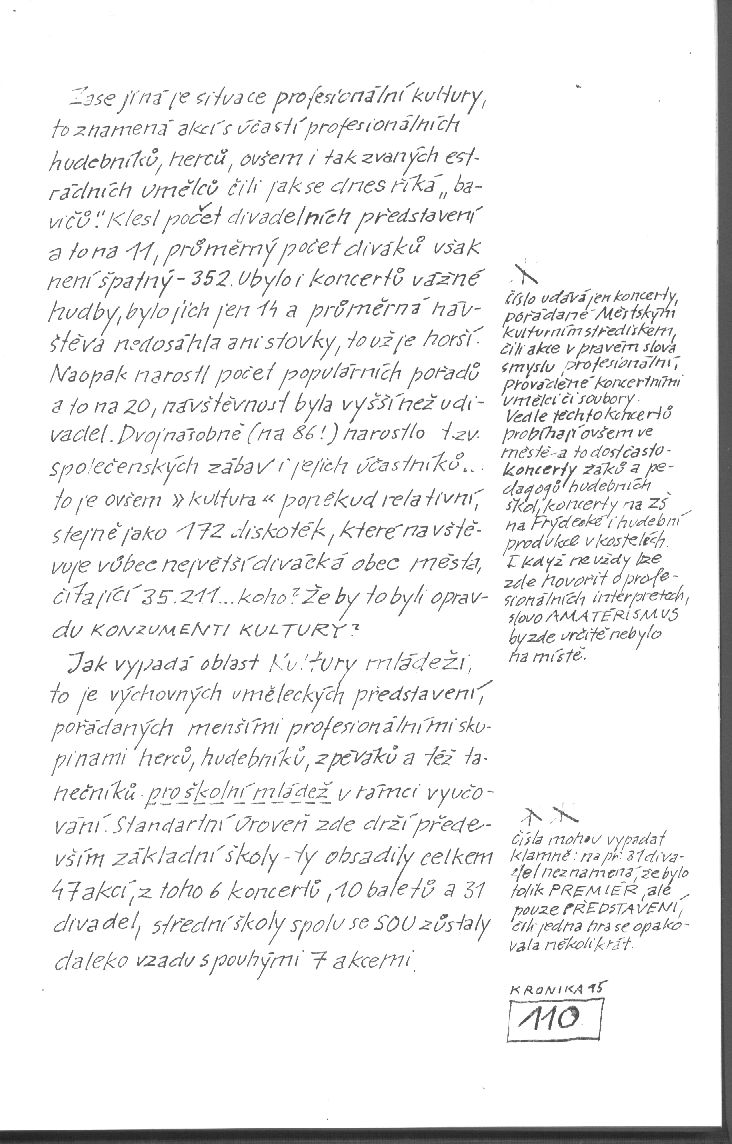 Zase jiná je situace profesionální kultury,
to znamená akcí s účastí profesionálních
hudebníků, herců, ovšem i tak zvaných est-
rádních umělců čili jak se dnes říká „ba-
vičů". Klesl počet divadelních představení
a to na 11, průměrný počet diváků však
není špatný - 352. Ubylo i koncertů vážné
hudby, bylo jich jen 14 a průměrná náv-
štěva nedosáhla ani stovky, to už je horší.
Naopak narostl počet populárních pořadů
a to na 20, návštěvnost byla vyšší než u di-
vadel. Dvojnásobně (na 86!) narostlo tzv.
společenských zábav i jejich účastníků...
to je ovšem » kultura « poněkud relativní,
stejně jako 172 diskoték, které navště-
vuje vůbec největší divácká obec města,
čítající 35.211... koho? Že by to byli oprav-
du KONZUMENTI KULTURY?
Jak vypadá oblast kultury mládeži,
to je výchovných uměleckých představení,
pořádaných menšími profesionálními sku-
pinami herců, hudebníků, zpěváků a též ta-
nečníků pro školní mládež v rámci vyučo-
vání. Standartní úroveň zde drží přede-
vším základní školy - ty obsadily celkem
47 akcí, z toho 6 koncertů, 10 baletů a 31
divadel, střední školy spolu se SOU zůstaly
daleko vzadu s pouhými 7 akcemi.
X
číslo udává jen koncerty,
pořádané Městským
kulturním střediskem,
čili akce v pravém slova
smyslu profesionální,
prováděné koncertními
umělci či soubory.
Vedle těchto koncertů
probíhají ovšem ve
městě - a to dost často -
koncerty žáků a pe-
dagogů hudebních
škol, koncerty na ZŠ
na Frýdecké i hudební
produkce v kostelech.
I když ne vždy lze
zde hovořit o profe-
sionálních interpretech,
slovo AMATÉRISMUS
by zde určitě nebylo
na místě.
X X
čísla mohou vypadat
klamně: na př. 31 diva-
del neznamená, že bylo
tolik PREMIÉR, ale
pouze PŘEDSTAVENÍ,
čili jedna hra se opako-
vala několikrát.
KRONIKA 95
110